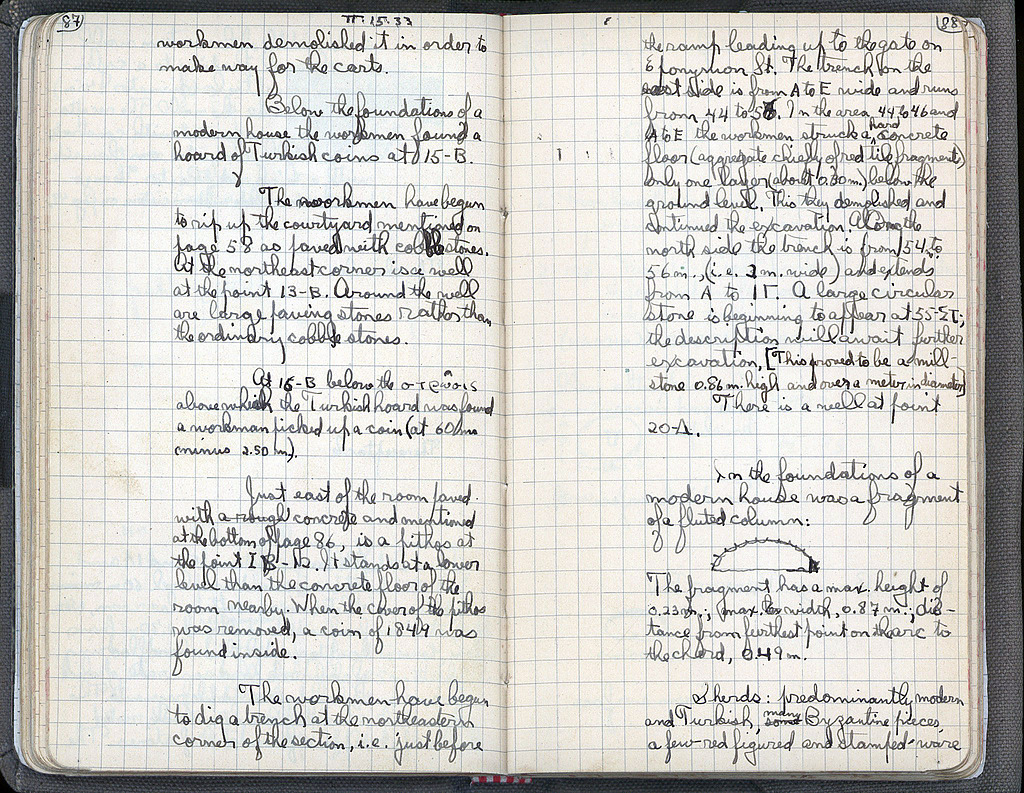 87
II 15.33
workmen demolished it in order to
make way for the carts.
Below the foundations of a
modern house the workmen found a
hoard of Turkish coins at 15-B.
The workmen have begun
to rip up the courtyard mentioned on
page 58 as paved with cobblestones.
At the northeast corner is a well
at the point 13-B. Around the well
are large paving stones rather than
the ordinary cobble stones.
At 15-B below the στερεός
above which the Turkish hoard was found
a workman picked up a coin (at 60 m
minus 2.50 m).
Just east of the room paved
with a rough concrete and mentioned
at the bottom of page 86, is a pithos at
the point It stands at a lower
level than the concrete floor of the
room nearby. When the cover of the pithos
was removed, a coin of 1849 was
found inside.
The workmen have begun
to dig a trench at the northeastern
corner of the section, i.e. just before
88
the ramp leading up to the gate on
Eponymon St. The trench on the
east side is from A to E wide and runs
from 44 to 56. In the area 44 to 46 and
A to E the workmen struck a hard concrete
floor (aggregate chiefly of red tile fragments)
only one layer (about 0.30 m.) below the
ground level. This they demolished and
continued the excavation. Along the
north side the trench is from 54 to
56 m., (i.e. 2 m. wide) and extends
from A to IΓ. A large circular
stone is beginning to appear at 55-ΣΤ;
the description will await further
excavation. [This proved to be a mill-
stone 0.86 m. high and over a meter in diameter]
There is a well at point
20-Δ.
In the foundations of a
modern house was a fragment
of a fluted column:
The fragment has a max. height of
0.23 m.; max. width, 0.87 m.; dis-
tance from furthest point on the arc to
the chord, 0.49 m.
Sherds: predominantly modern
and Turkish, many Byzantine pieces,
a few red figured and stamped ware